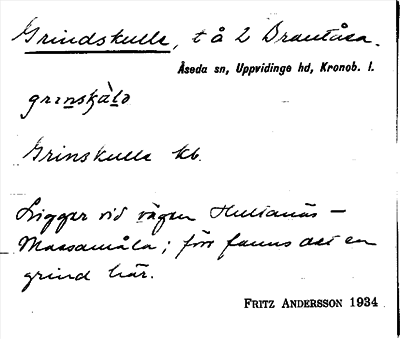 Grindskulle, t å 2 Drautåsa.
Åseda sn, Uppvidinge hd, Kronob. l.
Grinskulle kb.
Ligger vid vägen Hultanäs –
Massamåla; förr fanns det en
grind här.
FRITZ ANDERSSON 1934